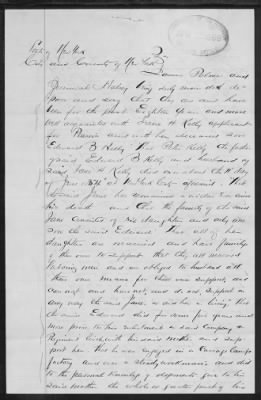 State of New York
City and County of New York
James Palmer and
Jeremiah Halsey being duly sworn doth de-
pose and say that they are and have
been for the past Eighteen years and more
well acquainted with Jane H Kelly applicant
for Pension and with her deceased son
Edward B Kelly. That Peter Kelly the father
of said Edward B Kelly and husband of
said Jane H Kelly died on or about the day
of Jany at New York City aforesaid. That
said Jane has remained a widow ever since
his death. That the family of said
Jane consisted of six daughters and only one
son the said Edward. That all of her
daughters are married and have families
of their own to support. That they all married
laboring men and are obliged to husband all
their own means for their own support, and
can not, and have not, and do not support in
any way the said Jane, or aid her in living. That
the said Edward did for some five years and
more prior to his enlistment in said Company &
Regiment live with his said mother and sup-
port her. That he was engaged in a Carriage
factory and was a steady workman and did
to the personal knowledge of deponents give to his
said mother the whole or greater part of his